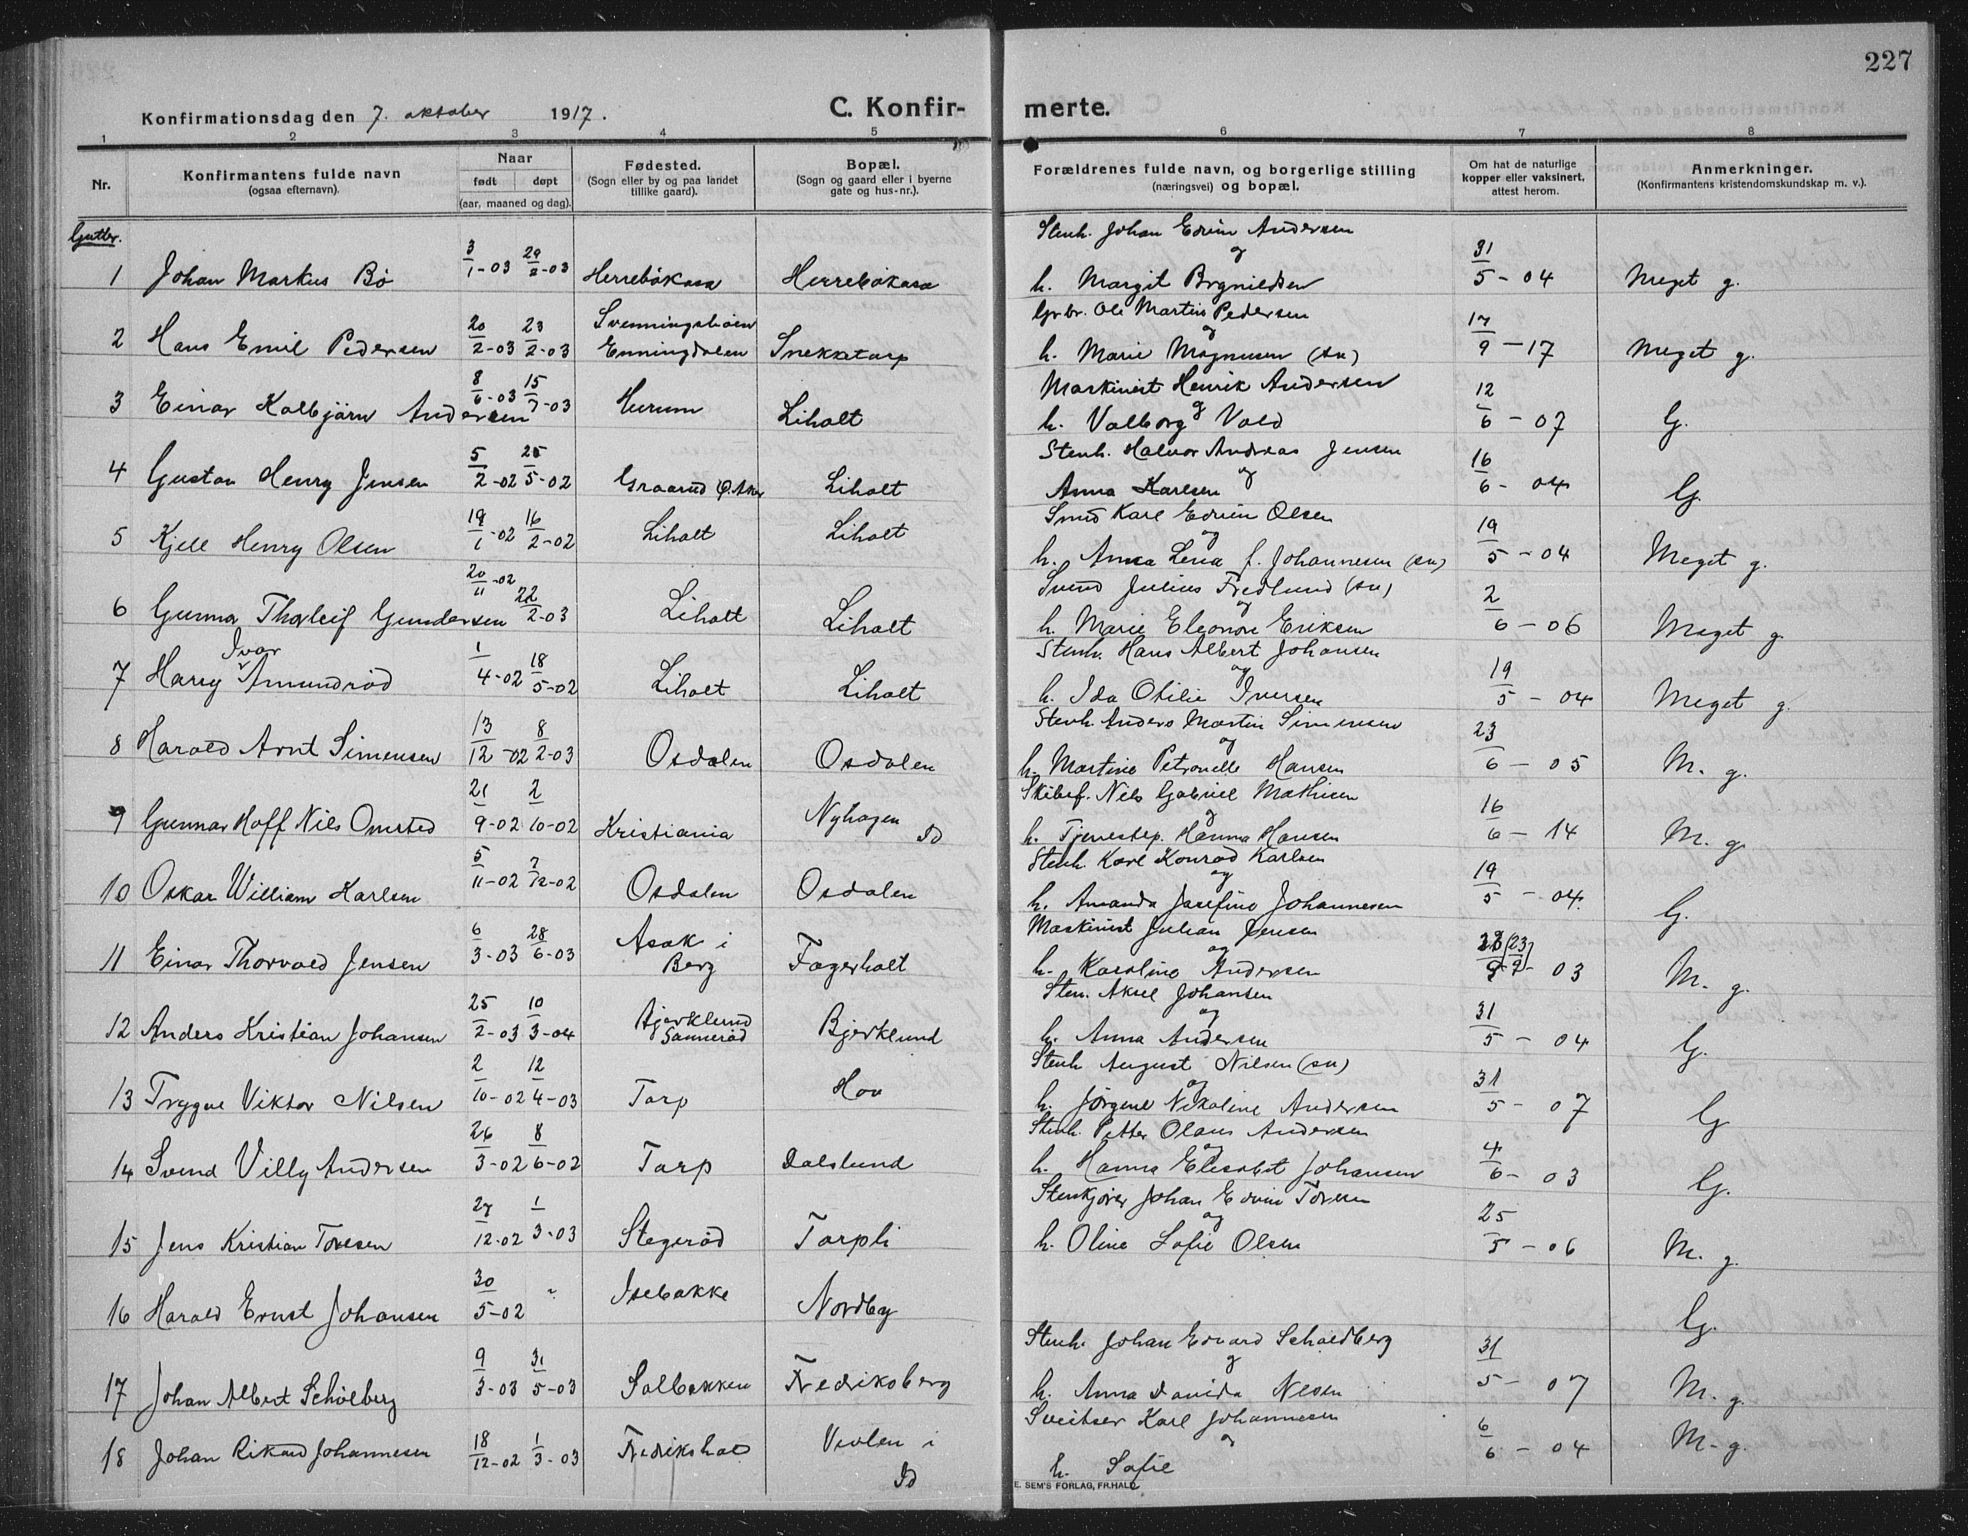 227
Konfirmationsdag den 7. oktober 1917.
C. Konfirmerte.
1 2 3 4 5 6 7 8
Nr.
Konfirmantens fulde navn
(ogsaa efternavn).
Naar
født døpt
(aar, maaned og dag).
Fødested.
(Sogn eller by og paa landet
tillike gaard).
Bopæl.
(Sogn og gaard eller i byerne
gate og hus-nr.).
Forældrenes fulde navn, og borgerlige stilling
(næringsvei) og bopæl.
Om hat de naturlige
kopper eller vaksinert,
attest herom.
Anmerkninger.
(Konfirmantens kristendomskundskap m. v.).
Gutter.
Stenh. Johan Edvin Andersen
og
1 Johan Markus Bø 3/1-03 29/2-03 Herrebøkasa Herrebøkasa h. Margit Brynildsen 31/5-04 Meget g.
Svenningsbøen Gr.br. Ole Martin Pedersen
og
2 Hans Emil Pedersen 20/2-03 23/2-03 Enningdalen Snekketorp h. Marie Magnusen (sv) 17/9-17 Meget g.
Maskinist Henrik Andersen
og
3 Einar Kolbjørn Andersen 8/6-03 15/7-03 Hurum Liholt h. Valborg Vold 12/6-07 G.
Stenh. Halvor Andreas Jensen
og
4 Gustav Henry Jensen 5/2-02 25/5-02 Graarud Ø. Aker Liholt Anna Karlsen 16/6-04 G.
Smed Karl Edvin Olsen
og
5 Kjell Henry Olsen 19/1-02 16/2-02 Liholt Liholt h. Anna Lena f. Johannesen (sv) 19/5-04 Meget g.
Svend Julius Fredlund (sv)
og
6 Gunnar Thorleif Gundersen 20/11-02 22/2-03 Liholt Liholt h. Marie Eleonore Eriksen 2/6-06 Meget g.
Ivar Stenh. Hans Albert Johansen
og
7 Harry Amundrød 1/4-02 18/5-02 Liholt Liholt h. Ida Otilie Iversen 19/5-04 Meget g.
Stenh. Anders Martin Simensen
og
8 Harald Arnt Simensen 13/12-02 8/2-03 Osdalen Osdalen h. Martine Petronelle Hansen 23/6-05 M. g.
Skibsf. Nils Gabriel Mathisen
og
9 Gunnar Hoff Nils Omsted 21/9-02 2/10-02 Kristiania Nyhagen Id h. Tjenestep. Hanna Hansen 16/6-14 M. g.
Stenh. Karl Konrad Karlsen
og
10 Oskar William Karlsen 5/11-02 7/12-02 Osdalen Osdalen h. Amanda Josefine Johannesen 19/5-04. G.
Maskinist Julian Jensen
og
11 Einar Thorvald Jensen 6/3-03 28/6-03 Asak i Berg Fagerholt h. Karoline Andersen (23/9)-03 M. g.
Sten. Aksel Johansen
og
12 Anders Kristian Johansen 25/2-03 10/3-04 Bjerklund Sannerød Bjerklund h. Anna Andersen 31/5-04 G.
Stenh August Nilsen (sv)
og
13 Trygve Viktor Nilsen 2/10-02 12/4-03 Torp Hov h. Jørgine Nikoline Andersen 31/5-07 G
Stenh. Petter Olaus Andersen
og
14 Svend Villy Andersen 26/3-02 8/6-02 Torp Dalslund h. Hanna Elisabet Johansen 4/6-03 G.
Stenkjører Johan Edvin Toresen
og
15 Jens Kristian Toresen 27/12-02 1/3-03 Stegerød Torpli h. Oline Sofie Olsen 25/5-06 M. g.
16 Harald Ernst Johansen 30/5-02 " Isebakke Nordby G.
Stenh. Johan Edvard Schøldberg
og
17 Johan Albert Schølberg 9/3-03 31/5-03 Solbakken Fredriksberg h. Anna Davida Nilsen 31/5-07 M. g.
Sveitser Karl Johannesen
og
18 Johan Rikard Johannesen 18/12-02 1/3-03 Fredrikshald Veden i Id h. Sofie 6/6-04 M. g.
E. SEM'S FORLAG, FR.HALD